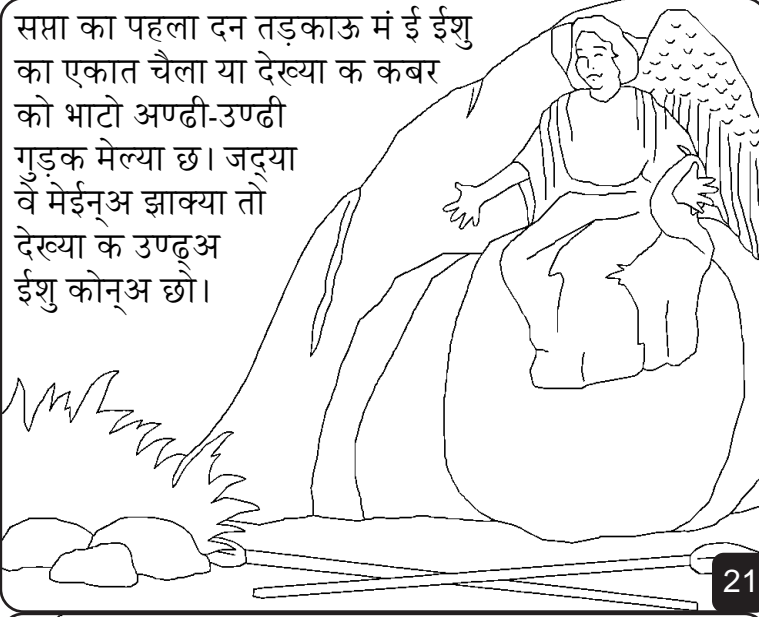 सप्ता का पहला दन तड़काऊ मं ई ईशु
का एकात चैला या देख्या क कबर
को भाटो अण्ढी-उण्ढी
गुड़क मेल्या छ। जद्‌या
वे मेईन्‌अ झाक्या तो
देख्या क उण्ढ्‌अ
ईशु कोन्‌अ छो।
21